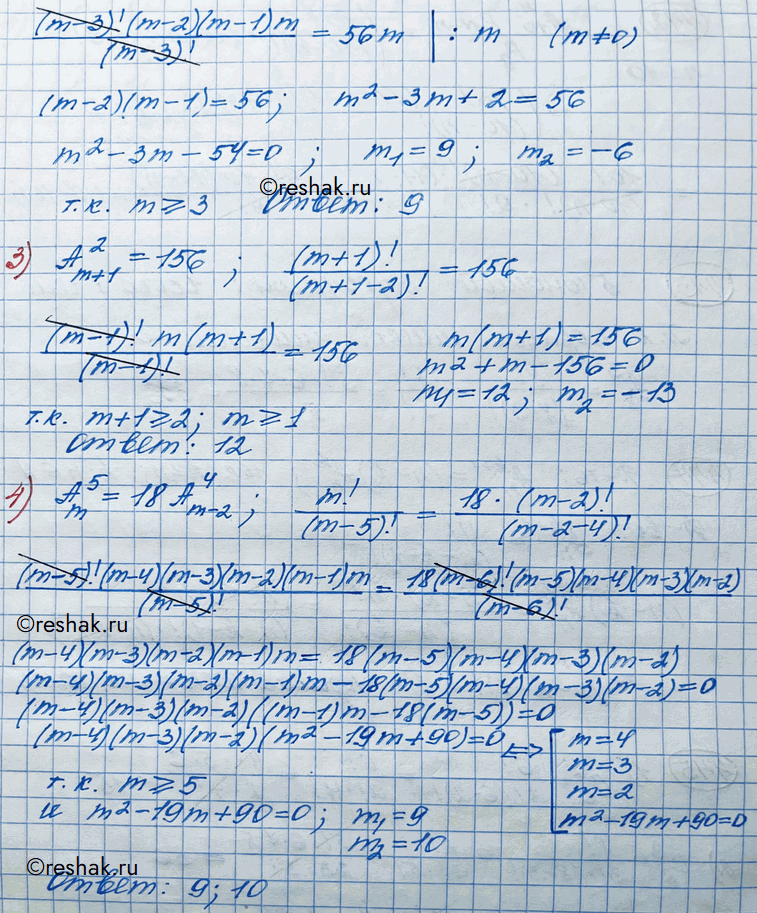 (m-3)!(m-2)(m-1)m / (m-3)! = 56m | : m (m≠0)
(m-2)(m-1)=56; m²-3m+2=56
m²-3m-54=0; m₁=9; m₂=-6
©reshak.ru
т.к. m⩾3 Ответ: 9
3) A²ₘ₊₁=156; (m+1)! / (m+1-2)! = 156
(m-1)! m(m+1) / (m-1)! = 156 m(m+1)=156
m2+m-156=0
m1=12; m₂=-13
т.к. m+1⩾2; m⩾1
Ответ: 12
4) A⁵ₘ=18A⁴ₘ₋₂; m! / (m-5)! = 18·(m-2)! / (m-2-4)!
(m-5)!(m-4)(m-3)(m-2)(m-1)m / (m-5)! = 18(m-6)!(m-5)(m-4)(m-3)(m-2) / (m-6)!
©reshak.ru
(m-4)(m-3)(m-2)(m-1)m=18(m-5)(m-4)(m-3)(m-2)
(m-4)(m-3)(m-2)(m-1)m-18(m-5)(m-4)(m-3)(m-2)=0
(m-4)(m-3)(m-2)((m-1)m-18(m-5))=0
(m-4)(m-3)(m-2)(m²-19m+90)=0 ⟺ [ m=4
m=3
m=2
m²-19m+90=0
т.к. m⩾5
и m²-19m+90=0; m₁=9
m₂=10
©reshak.ru
Ответ: 9; 10